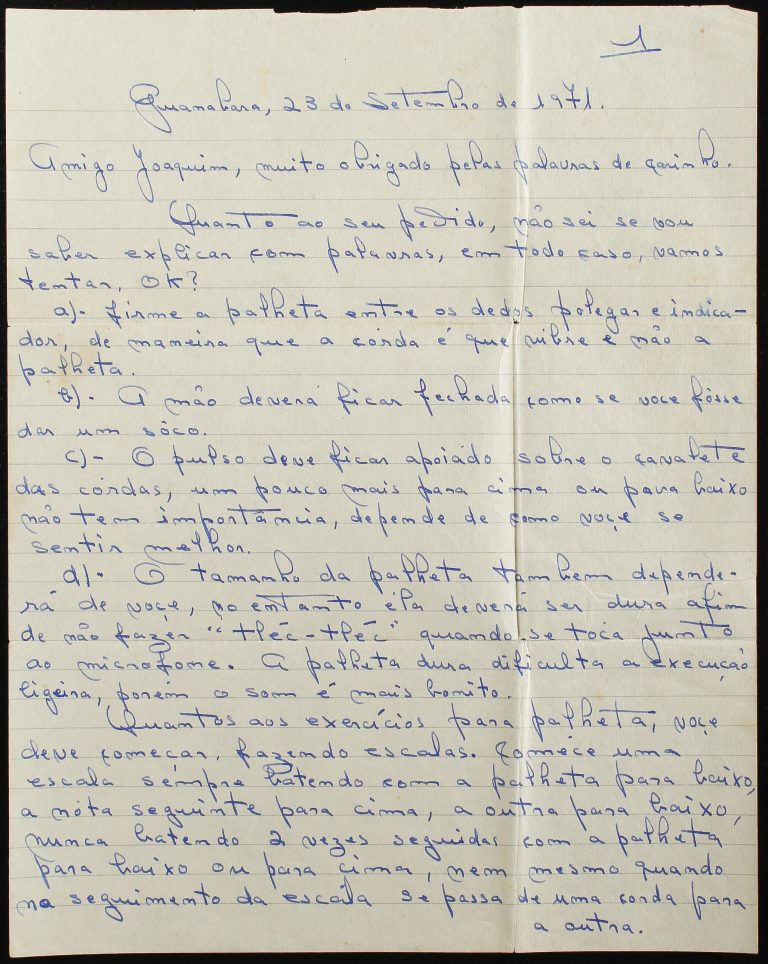 1
Guanabara, 23 de Setembro de 1971.
Amigo Joaquim, muito obrigado pelas palavras de carinho.
Quanto ao seu pedido, não sei se vou
saber explicar com palavras, em todo caso, vamos
tentar, OK?
a)- firme a palheta entre os dedos polegar e indica-
dor, de maneira que a corda é que vibre e não a
palheta.
b)- A mão deverá ficar fechada como se voce fôsse
dar um sôco.
c)- O pulso deve ficar apoiádo sobre o cavalete
das córdas, um pouco mais para cima ou para baixo
não tem importância, depende de como voçe se
sentir melhor.
d)- O tamanho da palheta tambem depende-
rá de voçe, no entanto éla deverá ser dura afim
de não fazer "tléc-tléc" quando se toca junto
ao microfone. A palheta dura dificulta a execução
ligeira, porém o som é mais bonito.
Quantos aos exercícios para palheta, voçe
deve começar, fazendo escalas. Comece uma
escala sémpre batendo com a palheta para baixo,
a nóta seguinte para cima, a outra para baixo,
nunca batendo 2 vezes seguidas com a palheta
para baixo ou para cima, nem mesmo quando
no seguimento da escála se passa de uma corda para
a outra.